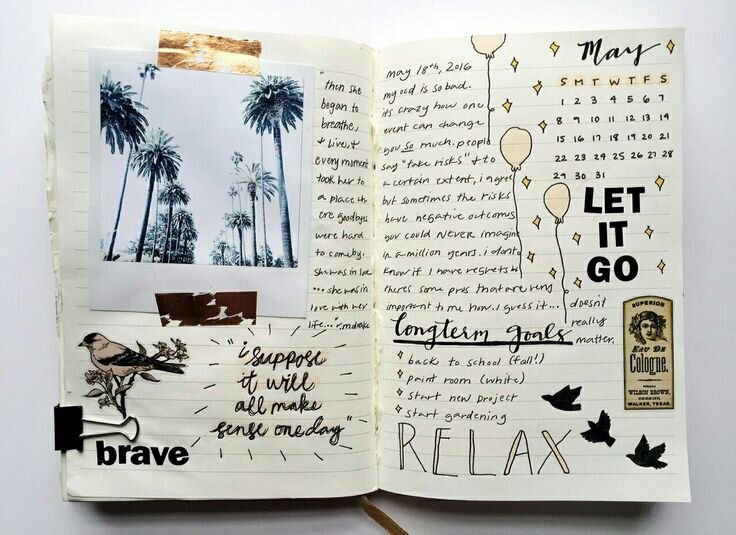 "then she
began to
breathe,
& live, &
every moment
took her to
a place wh
ere goodbyes
were hard
to come by.
she was in love
... she was in
love with her
life...
"i suppose
it will
all make
sense one day"
brave
may 18th, 2016
my ocd is so bad.
its crazy how one
event can change
you so much. people
say "take risks" & to
a certain extent, i agree
but sometimes the risks
have negative outcomes
you could NEVER imagine
in a million years. i dont
know if I have regrets bc
theres some pros that are very
important to me now. I guess it...
doesn't
really
matter.
May
S M T W T F S
1 2 3 4 5 6 7
8 9 10 11 12 13 14
15 16 17 18 19 20 21
22 23 24 25 26 27 28
29 30 31
LET
IT
GO
longterm goals
back to school (fall!)
paint room (white)
start new project
start gardening
RELAX
SUPERIOR
EAU DE
Cologne.
FROM
WILSON BROWN,
CHEMIST,
WALKER, TEXAS.